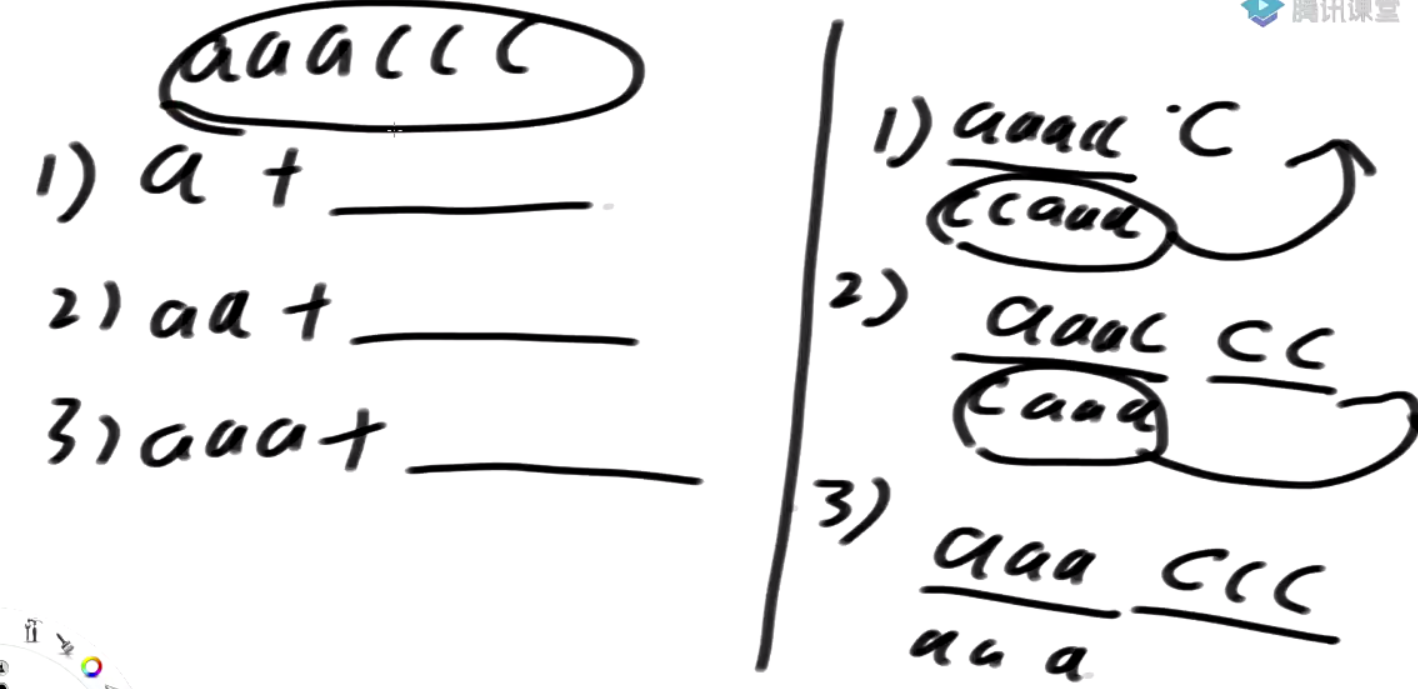 腾讯课堂
aaaccc
1) a + ______
2) aa + ______
3) aaa + ______
1) aaaa c
ccaaa
2) aaac cc
caaa
3)
aaa ccc
aaa